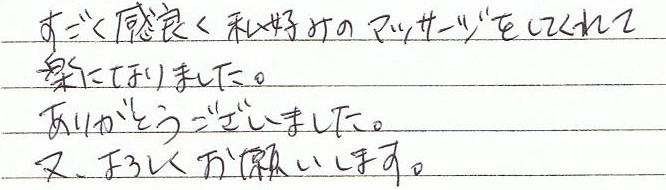 すごく感良く私好みのマッサージをしてくれて
楽になりました。
ありがとうございました。
又、よろしくお願いします。